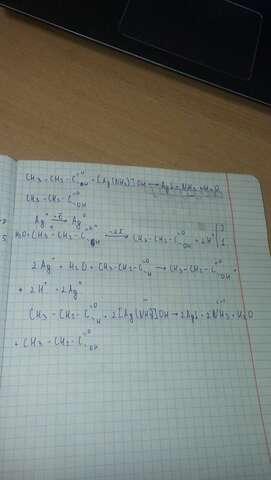 CH₃-CH₂-C=O H + [Ag(NH₃)₂]OH → Ag↓ + NH₃ + H₂O
CH₃-CH₂-C=O OH
Ag⁺ → Ag⁰ | 2
H₂O + CH₃-CH₂-C=O → CH₃-CH₂-C=O OH + 2H⁺ | 1
2Ag⁺ + H₂O + CH₃-CH₂-C=O H → CH₃-CH₂-C=O OH +
+ 2H⁺ + 2Ag⁰
CH₃-CH₂-C=O H + 2[Ag(NH₃)₂]OH → 2Ag↓ + 2NH₃ + H₂O
+ CH₃-CH₂-C=O OH